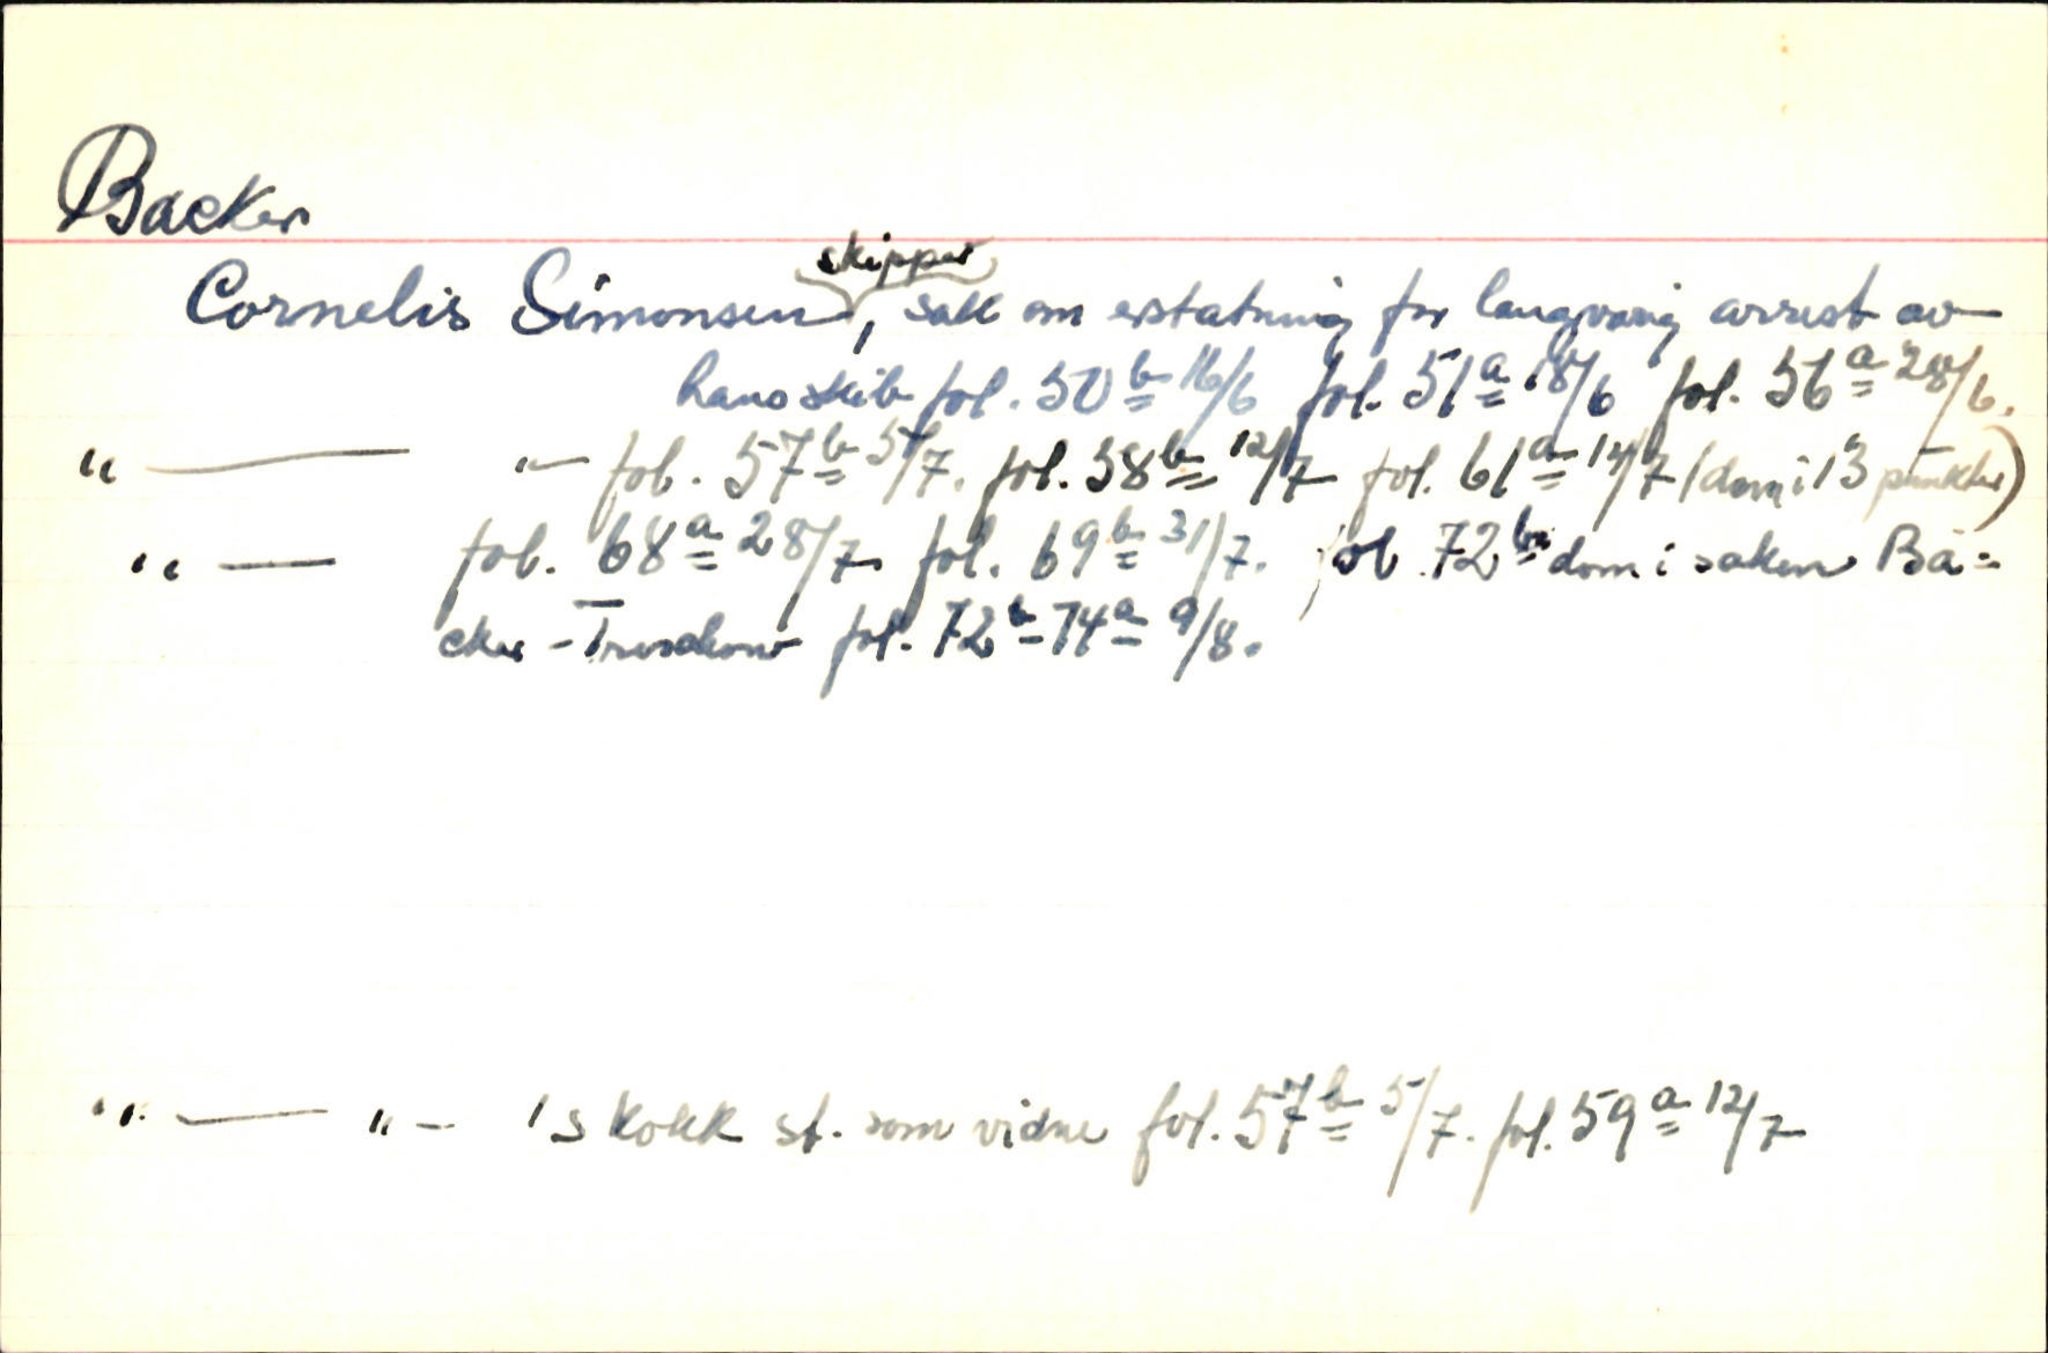 Backer
skipper
Cornelis Simonsen, sak om erstatning for langvarig arrest av
hans skib fol. 50b 16/6 fol. 51a 18/6 fol. 56a 28/6.
" — " — fol. 57b 5/7. fol. 58b 12/7 fol. 61a 14/7 (dom i 13 punkter)
" — fol. 68a 28/7 fol. 69b 31/7. fol. 72b dom i saken Bä=
cker - Treschow fol. 72b - 74a 9/8.
" — " — 's kokk st. som vidne fol. 57b 5/7. fol. 59a 12/7